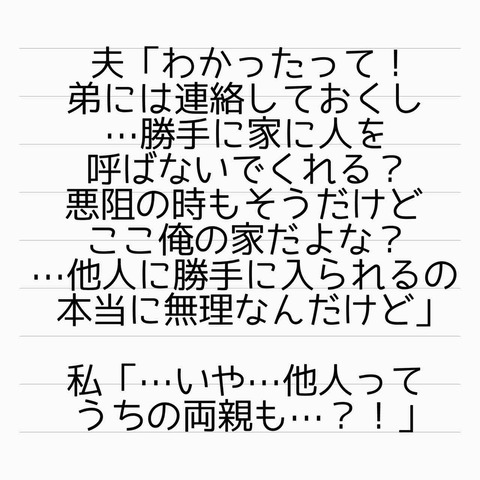 夫「わかったって！
弟には連絡しておくし
…勝手に家に人を
呼ばないでくれる？
悪阻の時もそうだけど
ここ俺の家だよな？
…他人に勝手に入られるの
本当に無理なんだけど」
私「…いや…他人って
うちの両親も…？！」